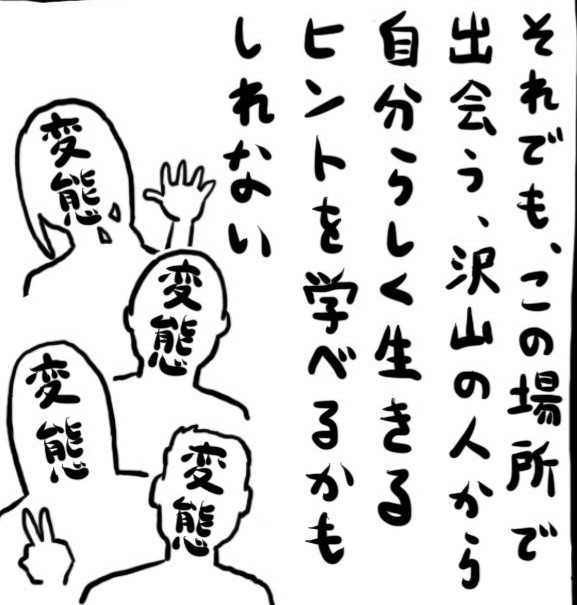 それでも、この場所で
出会う、沢山の人から
自分らしく生きる
ヒントを学べるかも
しれない
変態
変態
変態
変態